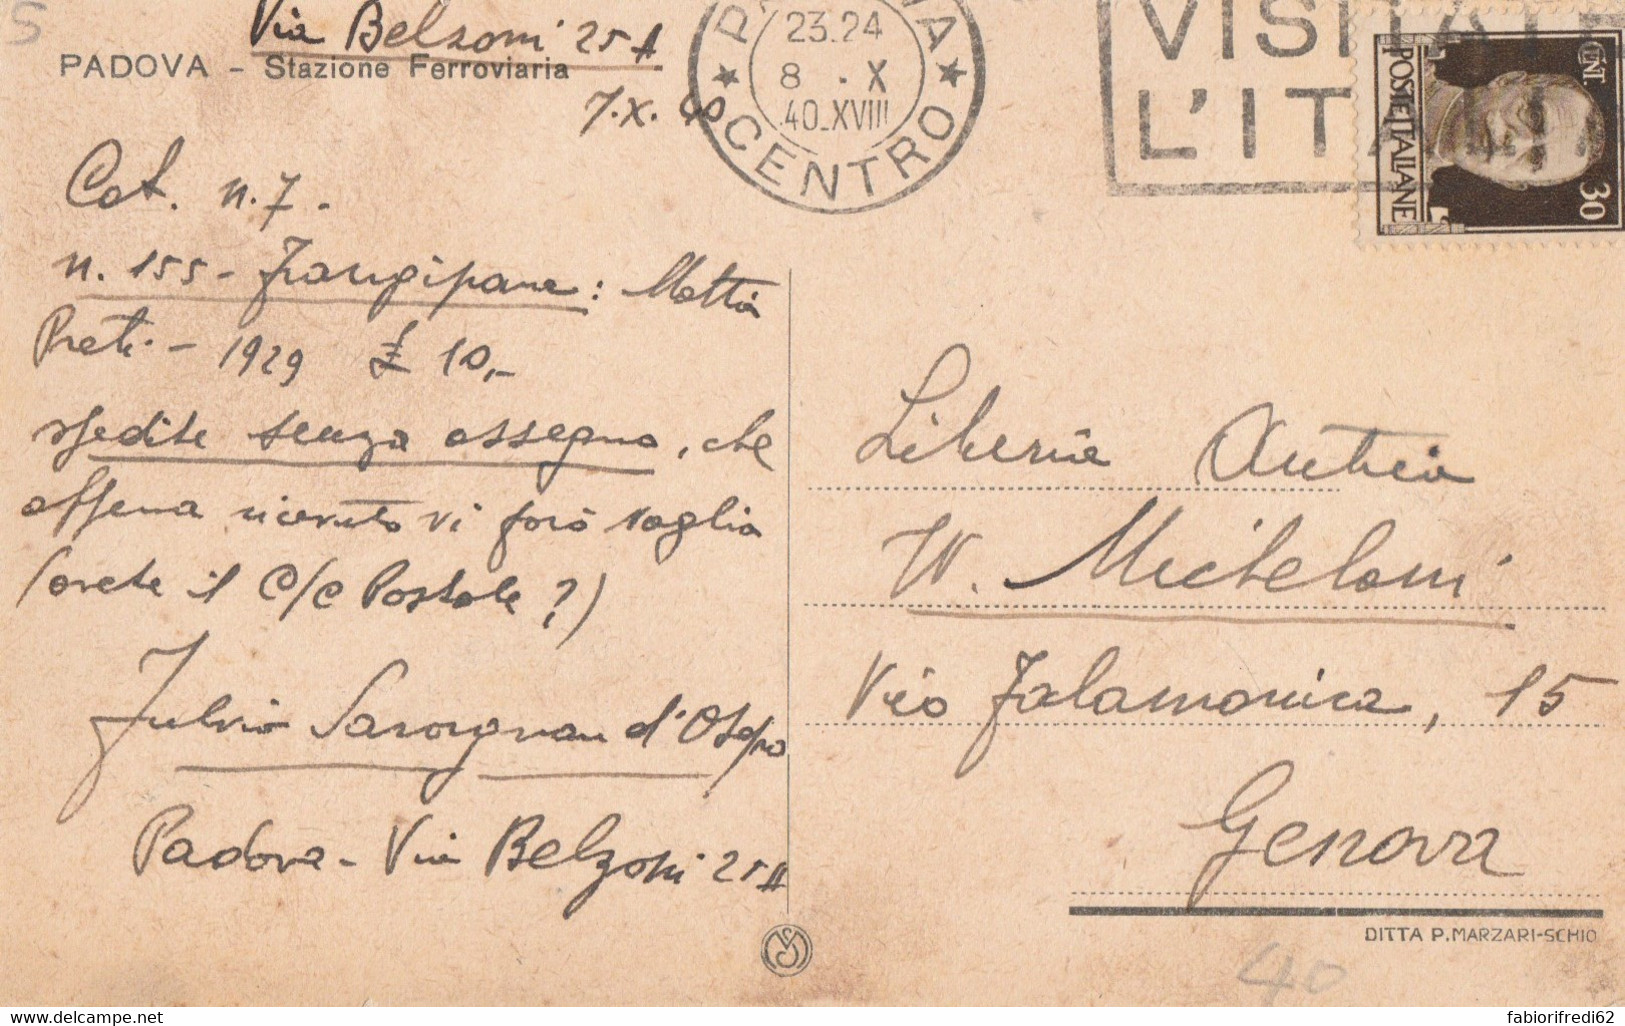 Via Belzoni 25A
PADOVA - Stazione Ferroviaria
7.X.40
23.24
8 . X
40.XVIII
CENTRO
VISITATE
L'ITALIA
CENT.
30
POSTE ITALIANE
Cat. n. 7 -
n. 155 - Frangipane: Mattia
Preti - 1929 £ 10,-
spedite senza assegno, che
appena ricevuto vi farò vaglia
(avete il C/C Postale?)
Fulvio Savorgnan d'Osopo
Padova - Via Belzoni 25A
Libreria Antica
W. Micheloni
Via Falamonica, 15
Genova
DITTA P. MARZARI-SCHIO
40
delcampe.net
fabiorifredi62